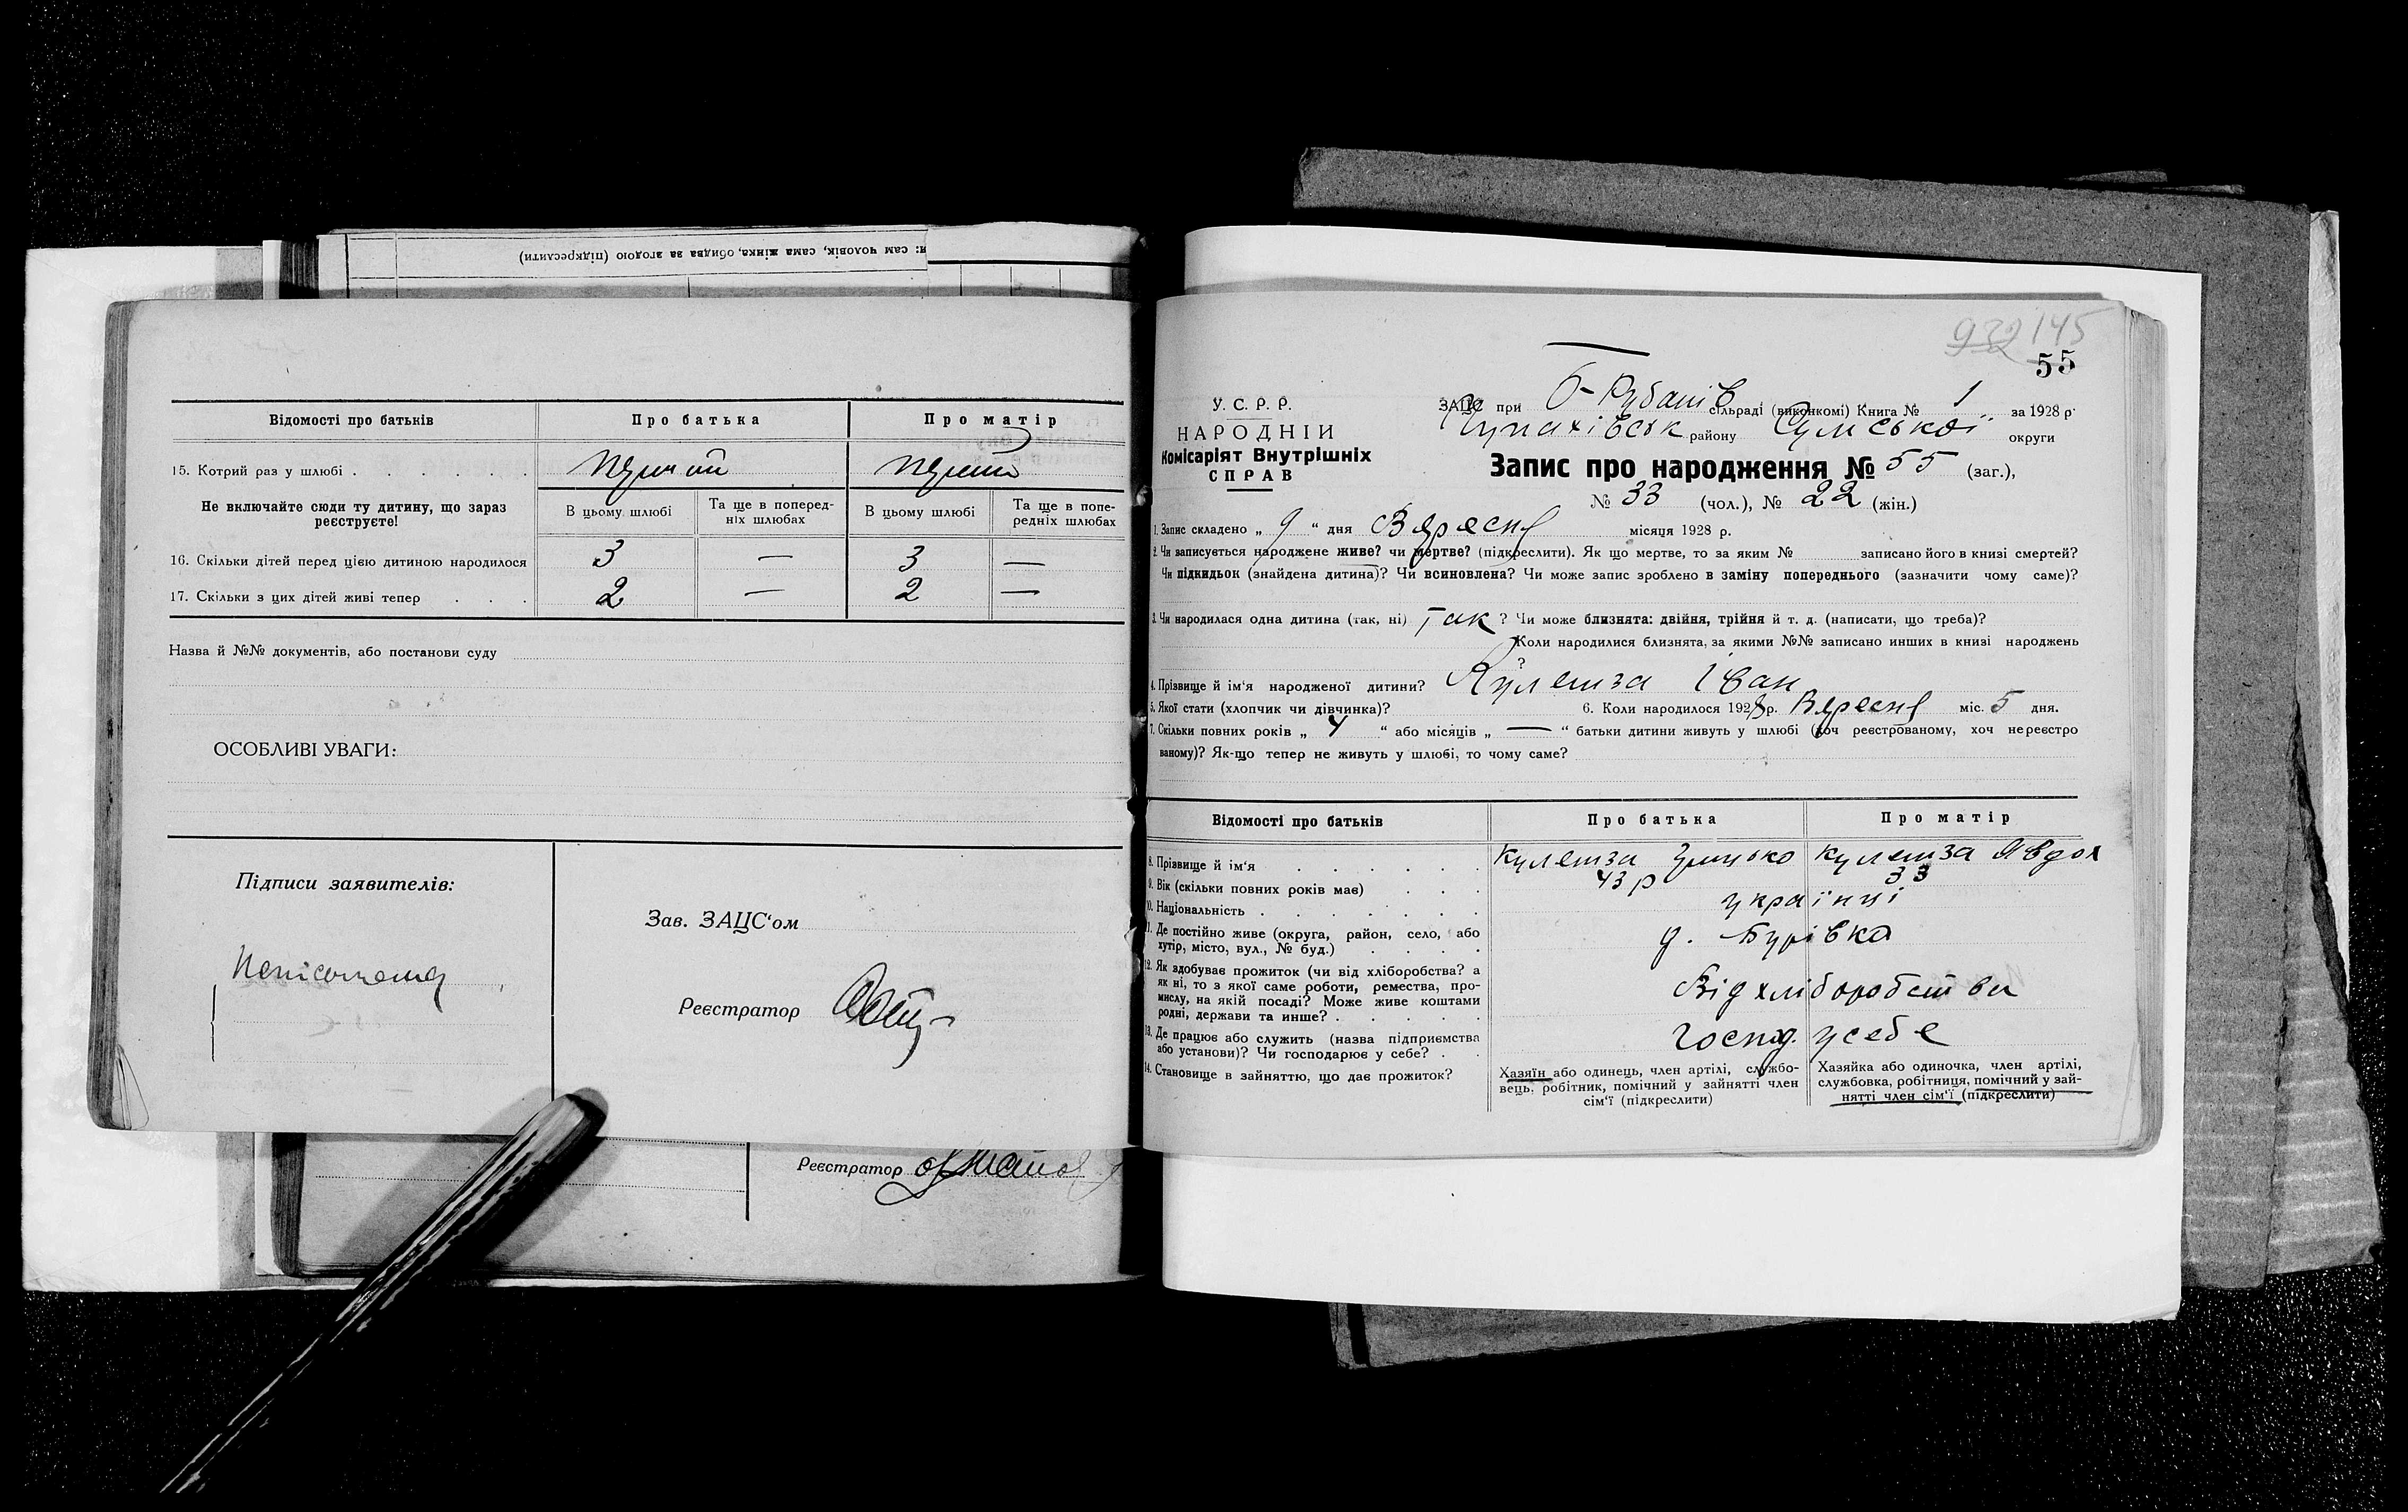 и: сам чоловік, сама жінка, обидва за згодою (підкреслити)
Відомості про батьків
Про батька
Про матір
15. Котрий раз у шлюбі . . . . . . .
Не включайте сюди ту дитину, що зараз реєструєте!
В цьому шлюбі
Та ще в поперед-
ніх шлюбах
В цьому шлюбі
Та ще в попе-
редніх шлюбах
16. Скільки дітей перед цією дитиною народилося 3 — 3 —
17. Скільки з цих дітей живі тепер . . . 2 — 2 —
Назва й №№ документів, або постанови суду
ОСОБЛИВІ УВАГИ:
Підписи заявителів:
Зав. ЗАЦС‘ом
Реєстратор
Реєстратор
932 145
55
У. С. Р. Р.
НАРОДНІЙ
Комісаріят Внутрішніх
СПРАВ
ЗАЦС при Б-Рубанів сільраді (виконкомі) Книга № 1 за 1928 р.
Чупахівськ району Сумської округи
Запис про народження № 55 (заг.),
№ 33 (чол.), № 22 (жін.)
1. Запис складено „ 9 “ дня Вересня місяця 1928 р.
2. Чи записується народжене живе? чи мертве? (підкреслити). Як що мертве, то за яким № записано його в книзі смертей?
Чи підкидьок (знайдена дитина)? Чи всиновлена? Чи може запис зроблено в заміну попереднього (зазначити чому саме)?
3. Чи народилася одна дитина (так, ні) Так ? Чи може близнята: двійня, трійня й т. д. (написати, що треба)?
Коли народилися близнята, за якими №№ записано инших в книзі народжень
?
4. Прізвище й ім‘я народженої дитини? Кулешза Іван
5. Якої стати (хлопчик чи дівчинка)? 6. Коли народилося 1928 р. Вересня міс. 5 дня.
7. Скільки повних років „ 4 “ або місяців „ — “ батьки дитини живуть у шлюбі (хоч реєстрованому, хоч нереєстро
ваному)? Як-що тепер не живуть у шлюбі, то чому саме?
Відомості про батьків
Про батька
Про матір
8. Прізвище й ім‘я . . . . . . Кулешза Грицько Кулешза Явдох
9. Вік (скільки повних років має) . . . 43 р 33
10. Національність . . . . . . . українці
11. Де постійно живе (округа, район, село, або
хутір, місто, вул., № буд.) . . . .
12. Як здобуває прожиток (чи від хліборобства? а
як ні, то з якої саме роботи, ремества, про-
мислу, на якій посаді? Може живе коштами
родні, держави та инше? . . . . .
Від хліборобства
13. Де працює або служить (назва підприємства
або установи)? Чи господарює у себе? . .
госпд. у себе
14. Становище в зайняттю, що дає прожиток?
Хазяїн або одинець, член артілі, службо-
вець, робітник, помічний у зайнятті член
сім‘ї (підкреслити)
Хазяйка або одиночка, член артілі,
службовка, робітниця, помічний у зай-
нятті член сім‘ї (підкреслити)